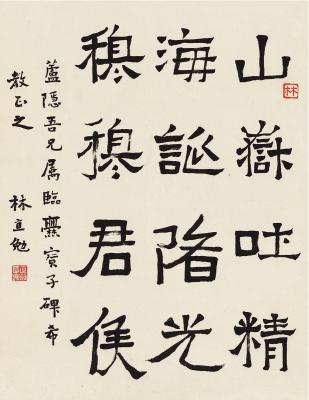 山嶽吐精
海誕陼光
穆穆君侯
蘆隱吾兄属臨爨寶子碑希
教正之 林直勉
林